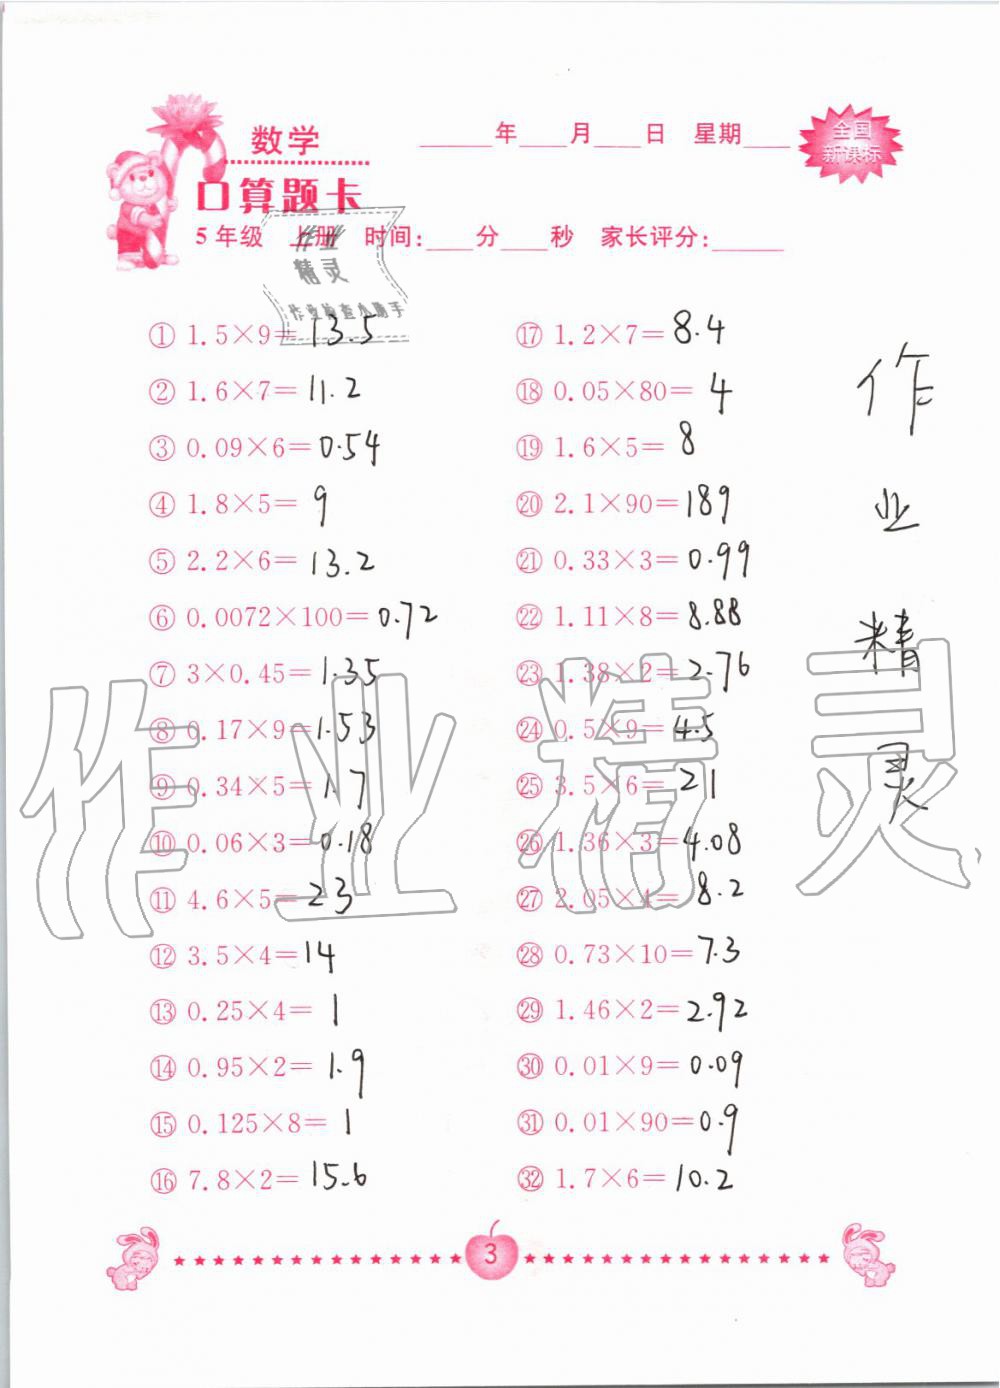 数学
____年____月____日 星期____
全国
新课标
口算题卡
5年级 上册 时间:____分____秒 家长评分:____
作业
精灵
作业检查小助手
① 1.5×9=13.5
② 1.6×7=11.2
③ 0.09×6=0.54
④ 1.8×5=9
⑤ 2.2×6=13.2
⑥ 0.0072×100=0.72
⑦ 3×0.45=1.35
⑧ 0.17×9=1.53
⑨ 0.34×5=1.7
⑩ 0.06×3=0.18
⑪ 4.6×5=23
⑫ 3.5×4=14
⑬ 0.25×4=1
⑭ 0.95×2=1.9
⑮ 0.125×8=1
⑯ 7.8×2=15.6
⑰ 1.2×7=8.4
⑱ 0.05×80=4
⑲ 1.6×5=8
⑳ 2.1×90=189
㉑ 0.33×3=0.99
㉒ 1.11×8=8.88
㉓ 1.38×2=2.76
㉔ 0.5×9=4.5
㉕ 3.5×6=21
㉖ 1.36×3=4.08
㉗ 2.05×4=8.2
㉘ 0.73×10=7.3
㉙ 1.46×2=2.92
㉚ 0.01×9=0.09
㉛ 0.01×90=0.9
㉜ 1.7×6=10.2
作业精灵
作业精灵
3